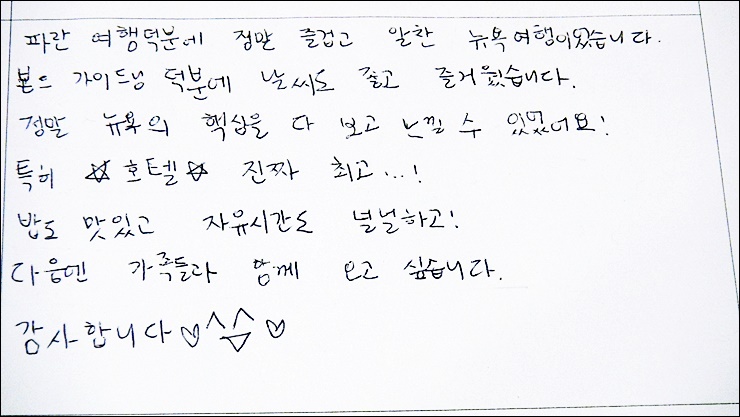 파란 여행덕분에 정말 즐겁고 알찬 뉴욕여행이었습니다.
본드 가이드님 덕분에 날씨도 좋고 즐거웠습니다.
정말 뉴욕의 핵심을 다 보고 느낄 수 있었어요!
특히 ☆호텔☆ 진짜 최고...!
밥도 맛있고 자유시간도 널널하고!
다음엔 가족들과 함께 오고 싶습니다.
감사합니다♡^^♡